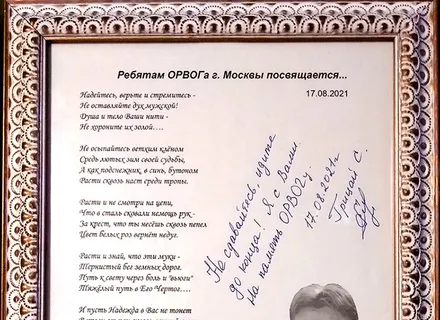 Ребятам ОРВОГа г. Москвы посвящается...
17.08.2021
Надейтесь, верьте и стремитесь -
Не оставляйте дух мужской!
Душа и тело Ваши нити -
Не хороните их золой….
Не осыпайтесь ветхим клёном
Средь лютых зим своей судьбы,
А как подснежник в синь, бутоном
Расти сквозь наст среди тропы.
Расти и не смотри на цепи,
Что в сталь сковали немощь рук -
За крест, что ты несёшь сквозь пепел
Цвет белых роз вернёт недуг.
Расти и знай, что эти муки -
Тернистый без земных дорог.
Путь к свету через боль и "вьюги"
Тяжёлый путь в Его Чертог….
И пусть Надежда в Вас не тонет
Не сдавайтесь, идите
до конца! Я с Вами.
На память ОРВОГу.
17.08.2021г.
Грицай С.